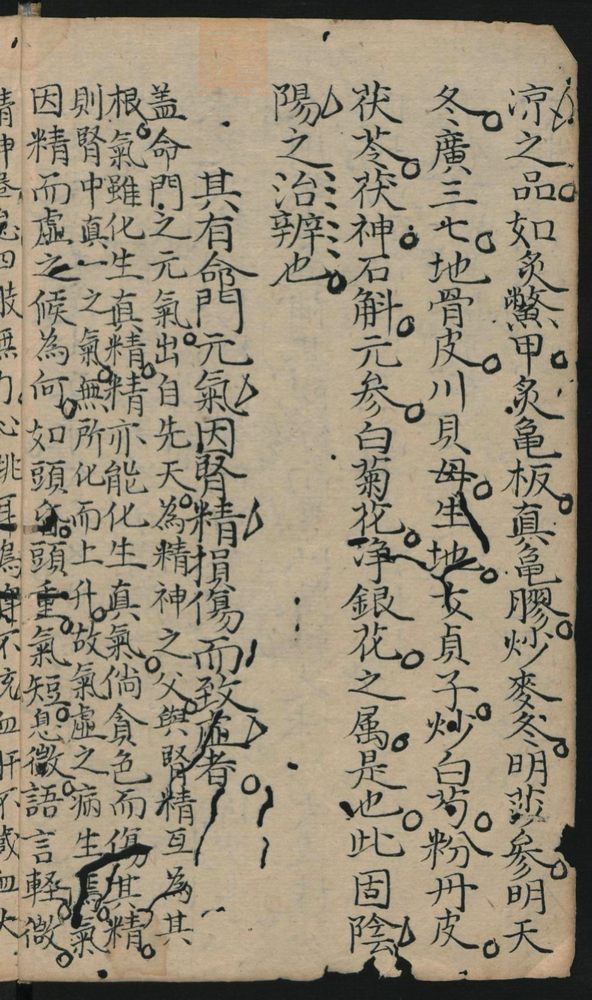 凉之品如炙鱉甲炙亀板真亀膠炒麥冬明沙參明天
冬廣三七地骨皮川貝母生地女貞子炒白芍粉丹皮
茯苓茯神石斛元參白菊花净銀花之属是也此固陰
陽之治辨也
其有命門元氣因腎精損傷而致虛者
盖命門之元氣出自先天為精神之父與腎精互為其
根氣雖化生真精精亦能化生真氣倘貪色而傷其精
則腎中真一之氣無所化而上升故氣虛之病生焉氣
因精而虛之候為何如頭頭重氣短息微語言輕微
精神四肢無力心跳耳鳴不充血肝不藏血大